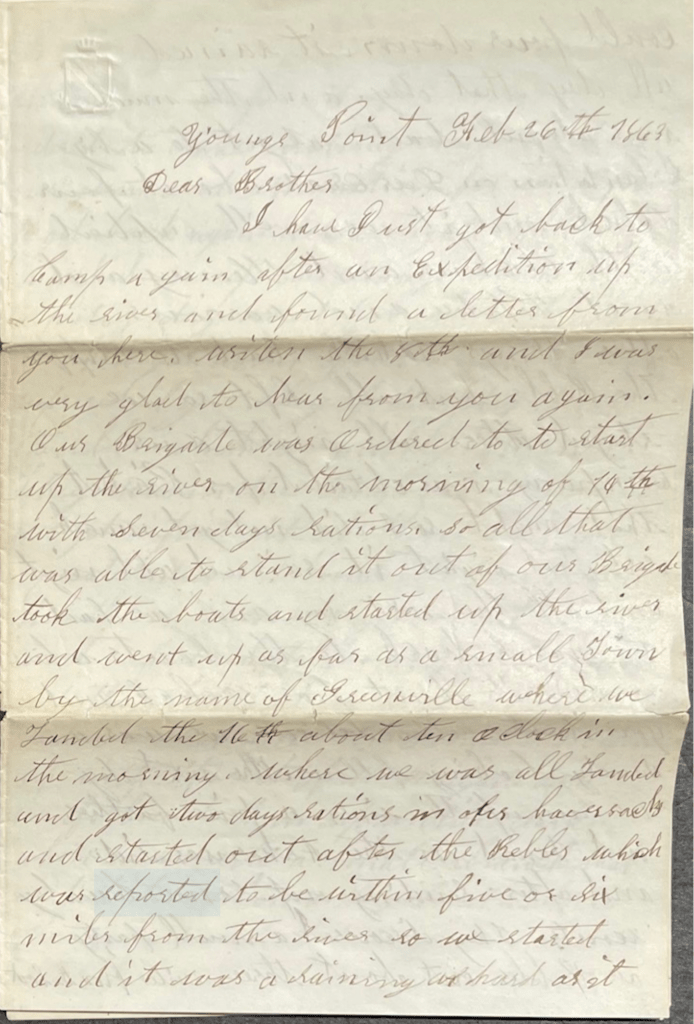 Youngs Point Feb 26th 1863
Dear Brother
I have Just got back to
Camp again after an Expedition up
the river and found a letter from
you here. writen the 8th and I was
very glad to hear from you again.
Our Brigade was Ordered to to start
up the river on the morning of 14th
with Seven days rations. so all that
was able to stand it out of our Brigade
took the boats and started up the river
and went up as far as a small Town
by the name of Greenville where we
Landed the 16th about ten oclock in
the morning. where we was all Landed
and got two days rations in our haversacks
and started out after the Rebles which
was reported to be within five or six
miles from the river so we started
and it was a raining as hard as it